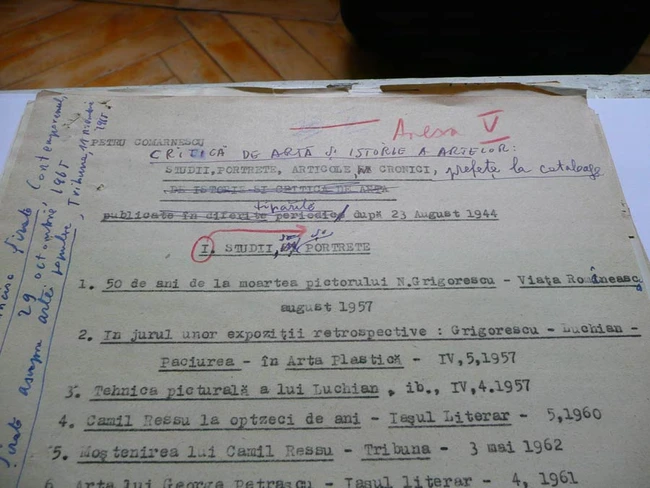 Anexa V
PETRU COMARNESCU
CRITICĂ DE ARTĂ ȘI ISTORIE A ARTELOR:
STUDII, PORTRETE, ARTICOLE, CRONICI, prefețe la cataloage
DE ISTORIE SI CRITICA DE ARTA
tipărite
publicate în diferite periodice după 23 August 1944
I. STUDII, ȘI PORTRETE
1. 50 de ani de la moartea pictorului N.Grigorescu - Viața Româneasc
august 1957
2. In jurul unor expoziții retrospective : Grigorescu - Luchian -
Paciurea - în Arta Plastică - IV,5,1957
3. Tehnica picturală a lui Luchian , ib., IV,4.1957
4. Camil Ressu la optzeci de ani - Iașul Literar - 5,1960
5. Moștenirea lui Camil Ressu - Tribuna - 3 mai 1962
6. Arta lui George Petrașcu - Iasul literar - 4, 1961
Contemporanul,
29 octombrie 1965
asupra artei române, Tribuna, 11 1965